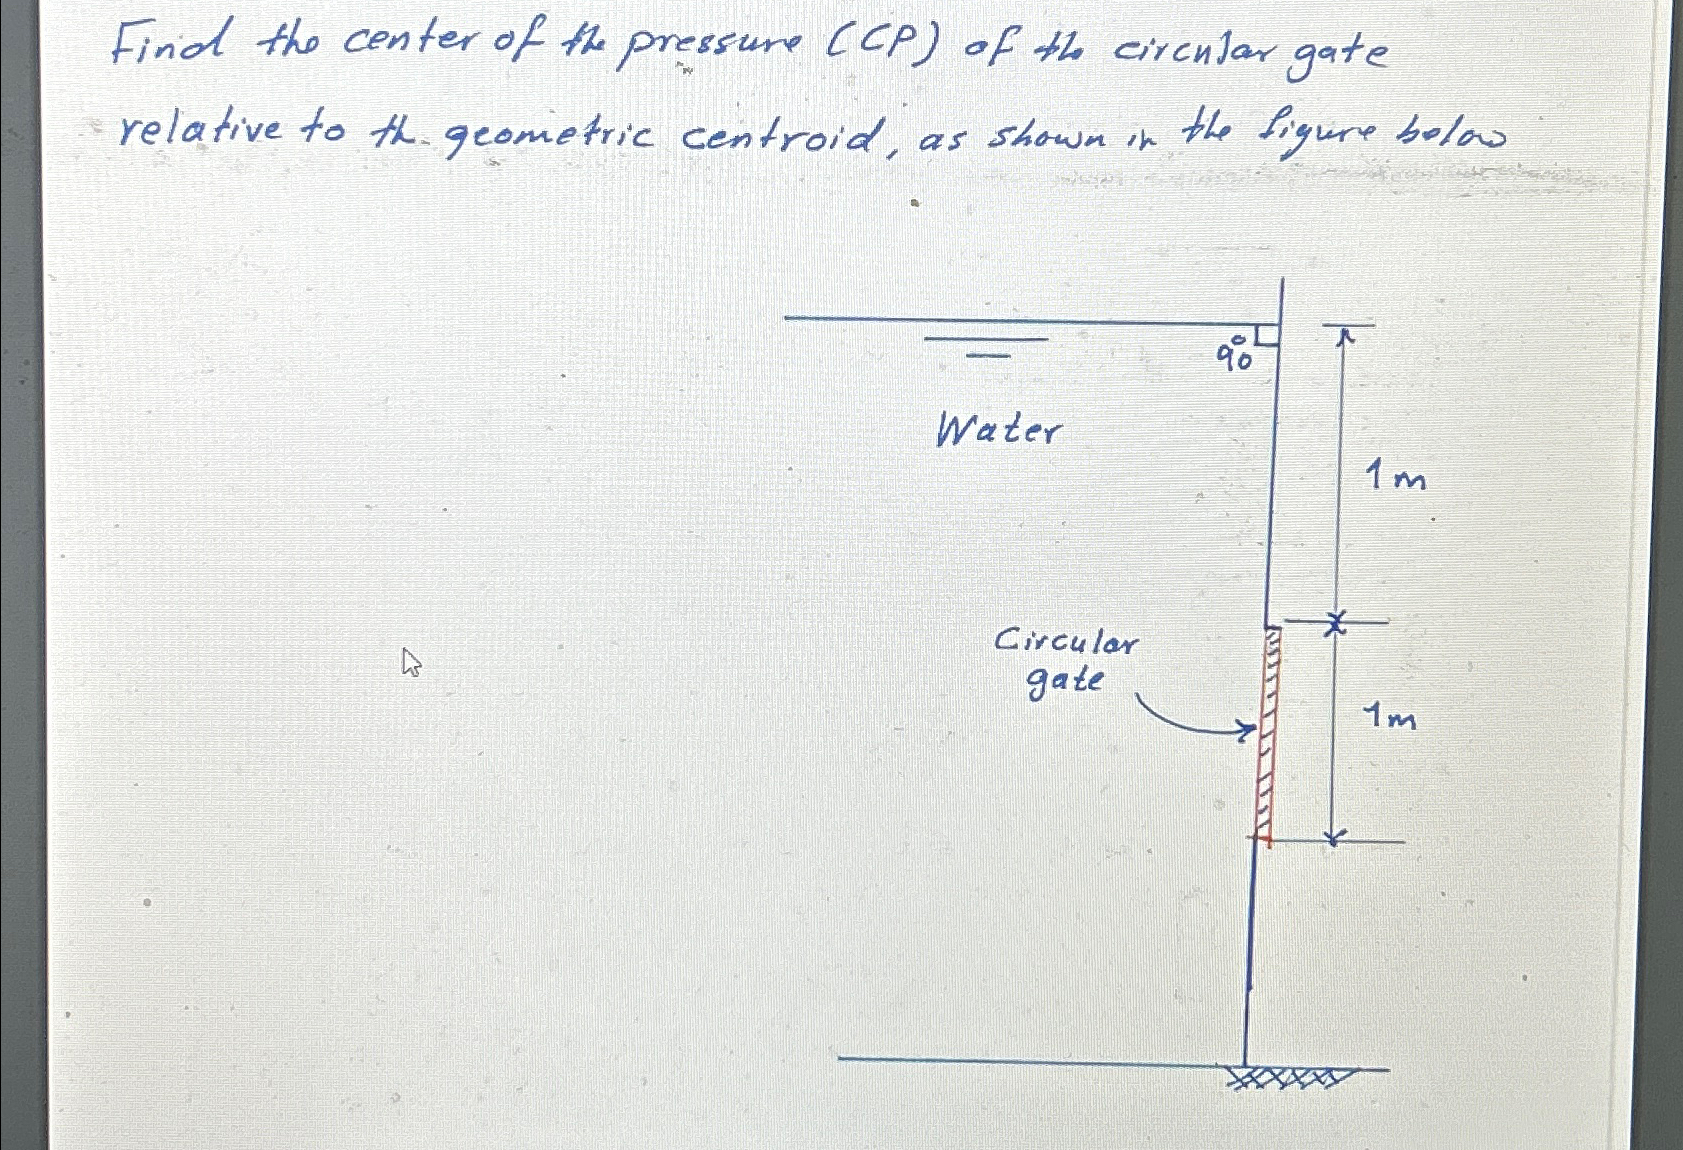 Find the center of the pressure (CP) of the circular gate
relative to th geometric centroid, as shown in the figure below
90°
Water
1 m
Circular
gate
1m